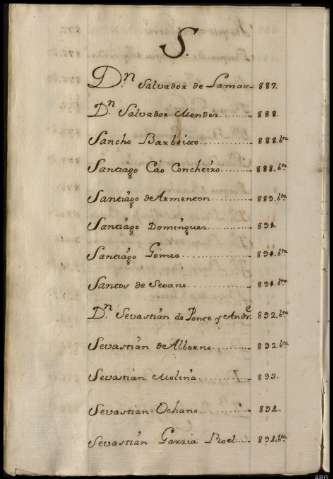 S.
Dn Salvador de Lamas.. 887.
Dn Salvador Mendez....... 888.
Sancho Barbeito......... 888.bta
Santiago Cao Concheiro..... 888.bta
Santiago de Armenton....... 889.bta
Santiago Dominguez....... 891.
Santiago Gomez.......... 891.bta
Santos de Seoane......... 891.bta
Dn Sevastian de Ponce y Andre. 892.bta
Sevastian de Alborno........ 892.bta
Sevastian Molina........ 893.
Sevastian Ochano........ 894.
Sevastian Garzia Roel..... 894.bta